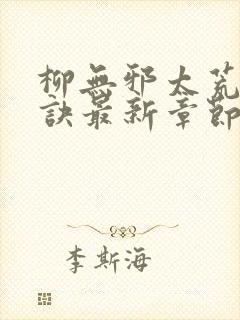 柳無邪太荒
訣最新章節
李斯海